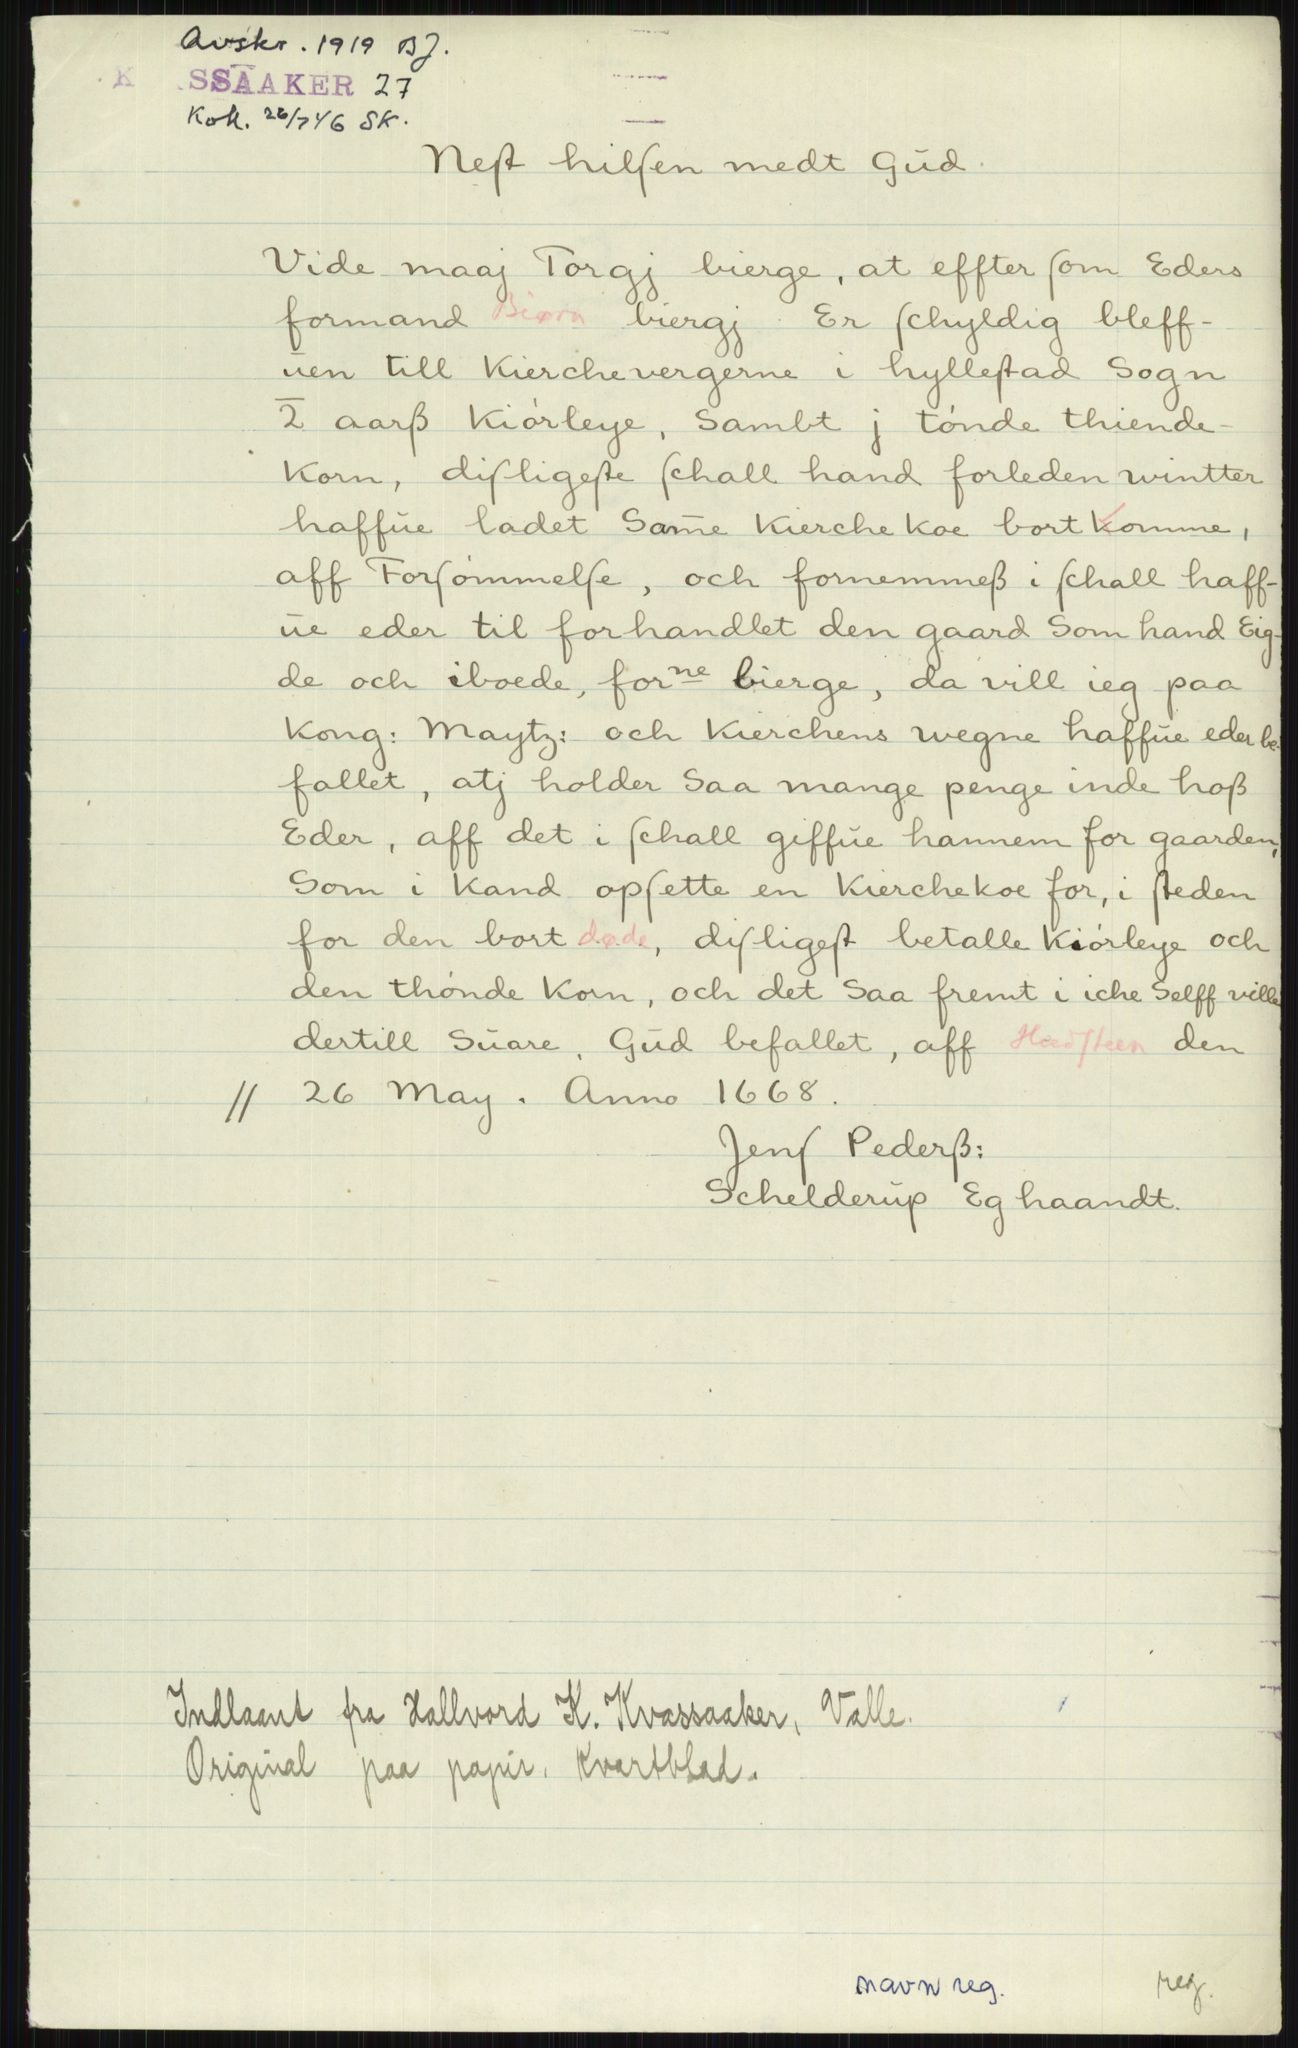 Avskr. 1919 BJ.
K SSAAKER 27
Kok. 26/7 46 SK.
Neſt hilſen medt Gūd.
Vide maaj Torgj bierge, at effter ſom Eders
formand Biørn biergj Er ſchyldig bleff-
ūen till Kierchevergerne i hylleſtad Sogn
2 aarß Kiórleye, Sambt j tónde thiende-
Korn, diſligeſte ſchall hand forleden wintter
haffūe ladet Sam̄e Kierche Koe bort Komme,
aff Forſómmelſe, och fornemmeß i ſchall haff-
ūe eder til forhandlet den gaard Som hand Eig-
de och iboede, forne bierge, da vill ieg paa
Kong: Maytz: och Kierchens wegne haffūe eder be-
fallet, atj holder Saa mange penge inde hoß
Eder, aff det i ſchall giffūe hannem for gaarden,
Som i Kand opſette en Kierchekoe for, i ſteden
for den bort døde, diſligeſt betalle Kiórleye och
den thónde Korn, och det Saa fremt i iche Selff ville
dertill Sūare. Gūd befallet, aff Hadſteen den
// 26 May. Anno 1668.
Jenſ Pederß:
Schelderūp Eg haandt.
Indlaant fra Hallvord K. Kvassaaker, Valle.
Original paa papir, Kvartblad.
navn reg. reg.